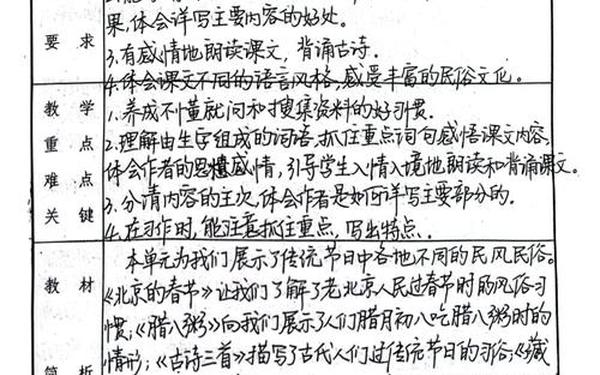 果,体会详写主要内容的好处。
要求
3.有感情地朗读课文,背诵古诗.
4.体会课文不同的语言风格,感受丰富的民俗文化。
教学
重点
难点
关键
1.养成不懂就问和搜集资料的好习惯.
2.理解由生字组成的词语,抓住重点词句感悟课文内容,
体会作者的思想感情,引导学生入情入境地朗读和背诵课文。
3.分清内容的主次,体会作者是如何详写主要部分的.
4.在习作时,能注意抓住重点,写出特点.
教材
简析
本单元为我们展示了传统节日中各地不同的民风民俗。
《北京的春节》让我们了解了老北京人民过春节时的风俗习
惯;《腊八粥》向我们展示了人们腊月初八吃腊八粥时的
情形;《古诗三首》描写了古代人们过传统节日的习俗;《藏